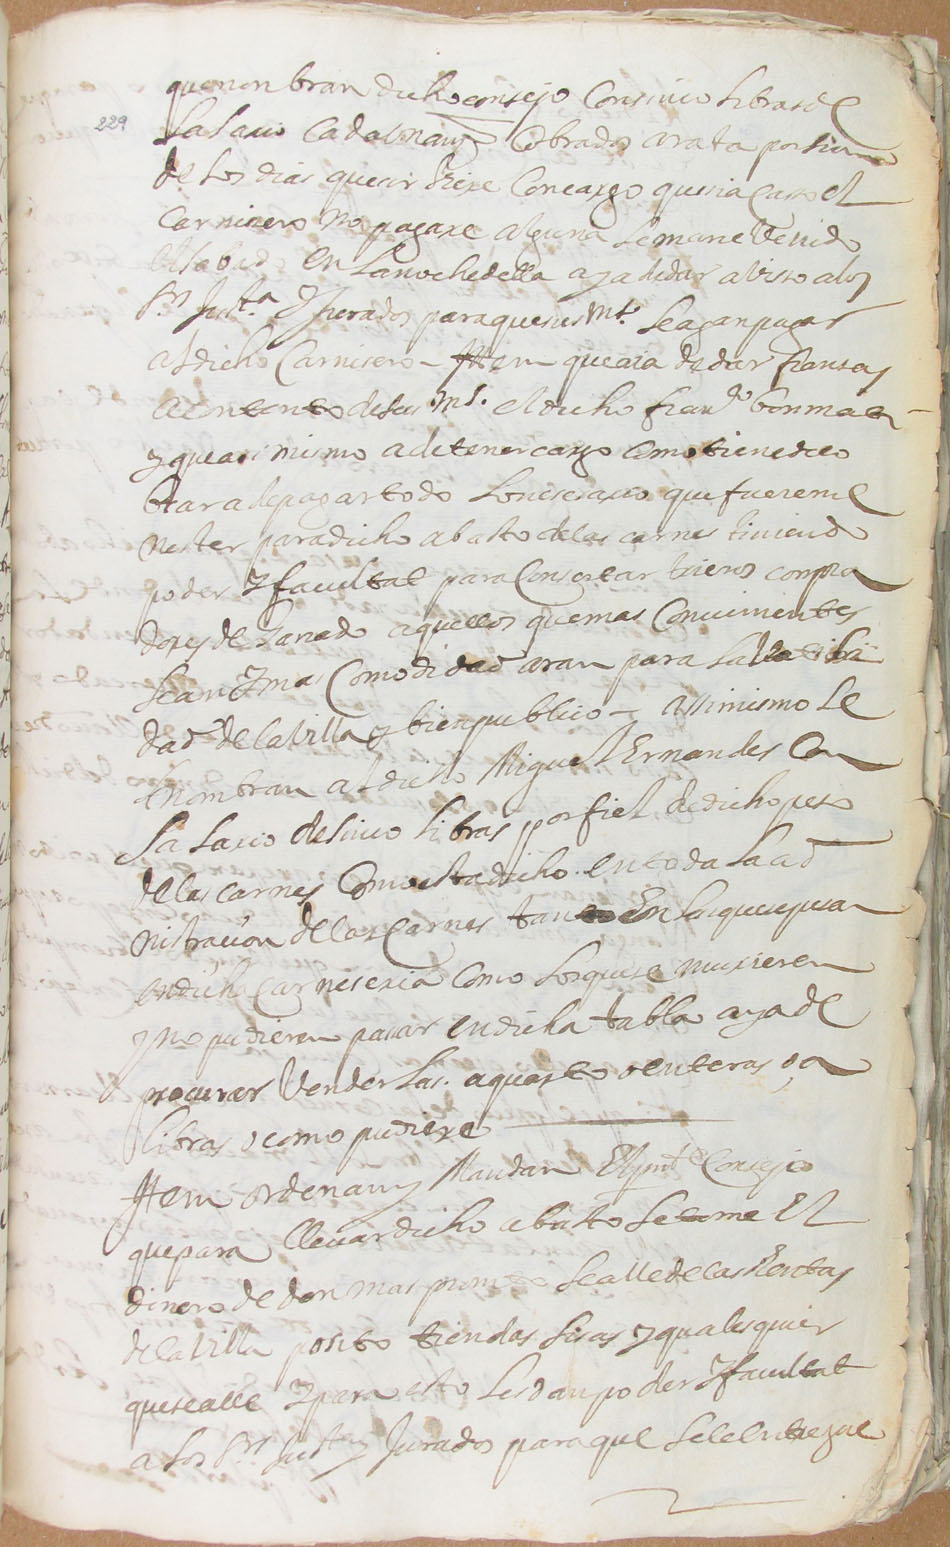 que nonbran dicho consejo con sinco libras de
229
salario cada un any cobrados a rata por
de los dias que sirviere con cargo que si a caso el
carnisero no pagare alguna semane venido
el sabado en la noche della aya de dar aviso a los
Srs Justa y Jurados para que sus mts. le agan pagar
al dicho carnisero - Ittem que aia de dar fiansas
a contento de sus ms. el dicho franco
y que asi mismo a de tener cargo como tiene dicho
de pagar todo lo nesesario que fuere me
nester para dicho abasto de las carnes tiniendo
poder y facultat para consertar compra
dores de ganado aquellos que mas convinientes
sean y mas comodidad aran para la
dad de la Villa y bien publico - assimismo le
nombran al dicho Miguel Ernandes con
salario de sinco libras por fiel de dicho peso
de las carnes como esta dicho en toda la ad
nistracion de las carnes tanto en las que se
en dicha carneseria como los que se murieren
y no pudieren pasar en dicha tabla aya de
procurar vender las. a quarto o enteras o a
libras o como pudiere
Ittem ordenan y Mandan El pnt Consejo
que para llevar dicho abasto se tome El
dinero de don mas se alle de las Rentas
de la Villa posito tiendas sisas y qualesquier
que se alle y para esto les dan poder y facultat
a los Srs Justa y Jurados para que se le entregue